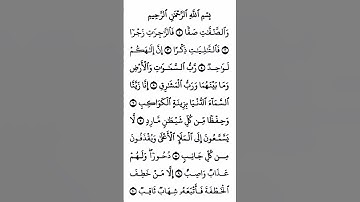 بِسْمِ ٱللَّهِ ٱلرَّحْمَٰنِ ٱلرَّحِيمِ
وَٱلصَّٰٓفَّٰتِ صَفًّا ۝١ فَٱلزَّٰجِرَٰتِ زَجْرًا
۝٢ فَٱلتَّٰلِيَٰتِ ذِكْرًا ۝٣ إِنَّ إِلَٰهَكُمْ
لَوَٰحِدٌ ۝٤ رَّبُّ ٱلسَّمَٰوَٰتِ وَٱلْأَرْضِ
وَمَا بَيْنَهُمَا وَرَبُّ ٱلْمَشَٰرِقِ ۝٥ إِنَّا زَيَّنَّا
ٱلسَّمَآءَ ٱلدُّنْيَا بِزِينَةٍ ٱلْكَوَاكِبِ ۝٦
وَحِفْظًا مِّن كُلِّ شَيْطَٰنٍ مَّارِدٍ ۝٧ لَّا
يَسَّمَّعُونَ إِلَى ٱلْمَلَإِ ٱلْأَعْلَىٰ وَيُقْذَفُونَ
مِن كُلِّ جَانِبٍ ۝٨ دُحُورًا ۖ وَلَهُمْ
عَذَابٌ وَاصِبٌ ۝٩ إِلَّا مَنْ خَطِفَ
ٱلْخَطْفَةَ فَأَتْبَعَهُۥ شِهَابٌ ثَاقِبٌ ۝١٠